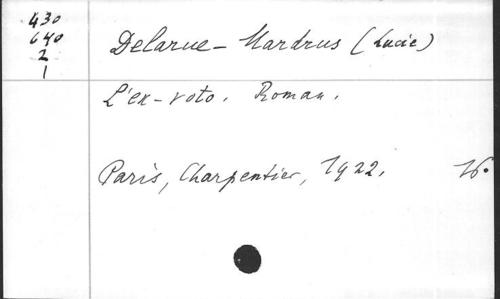 430
640
2
1
Delarue-Mardrus (Lucie)
L'ex-voto. Roman.
Paris, Charpentier, 1922. 16.